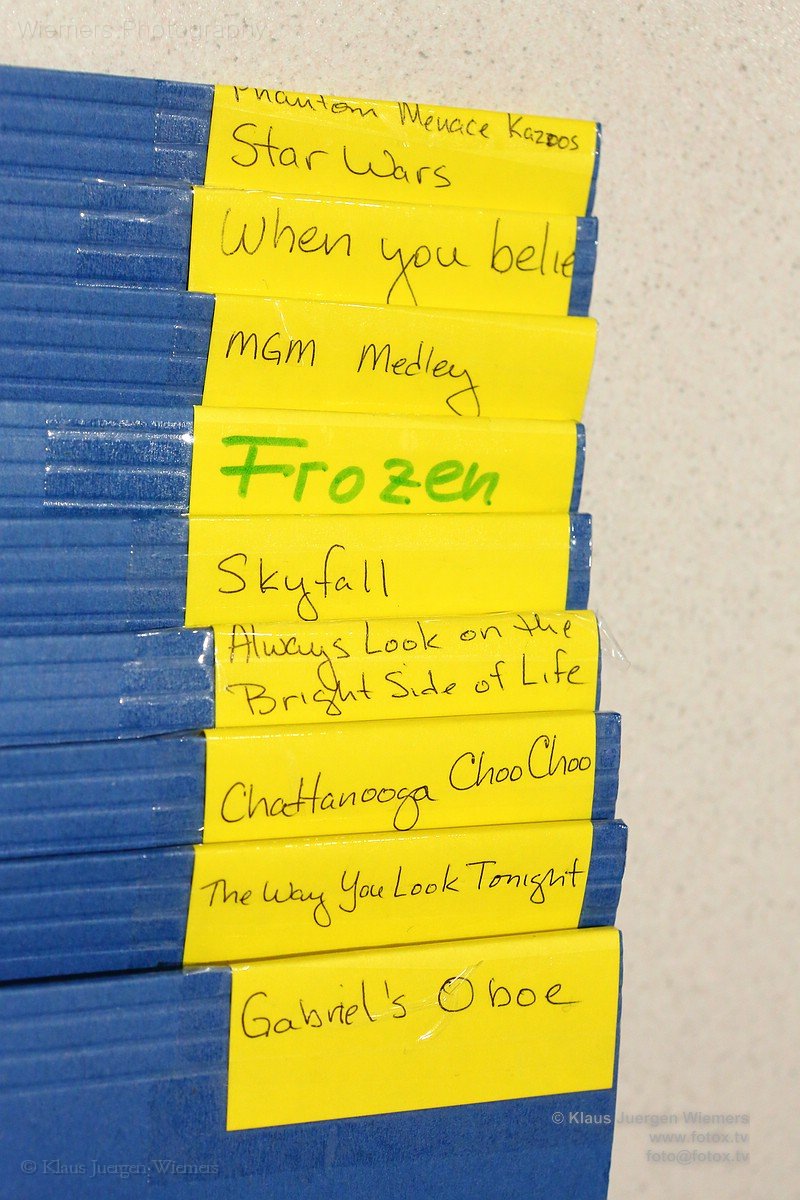 Wiemers Photography
Phantom Menace Kazoos
Star Wars
When you belie
MGM Medley
Frozen
Skyfall
Always Look on the
Bright Side of Life
Chattanooga Choo Choo
The Way You Look Tonight
Gabriel's Oboe
© Klaus Juergen Wiemers
www.fotox.tv
foto@fotox.tv
© Klaus Juergen Wiemers